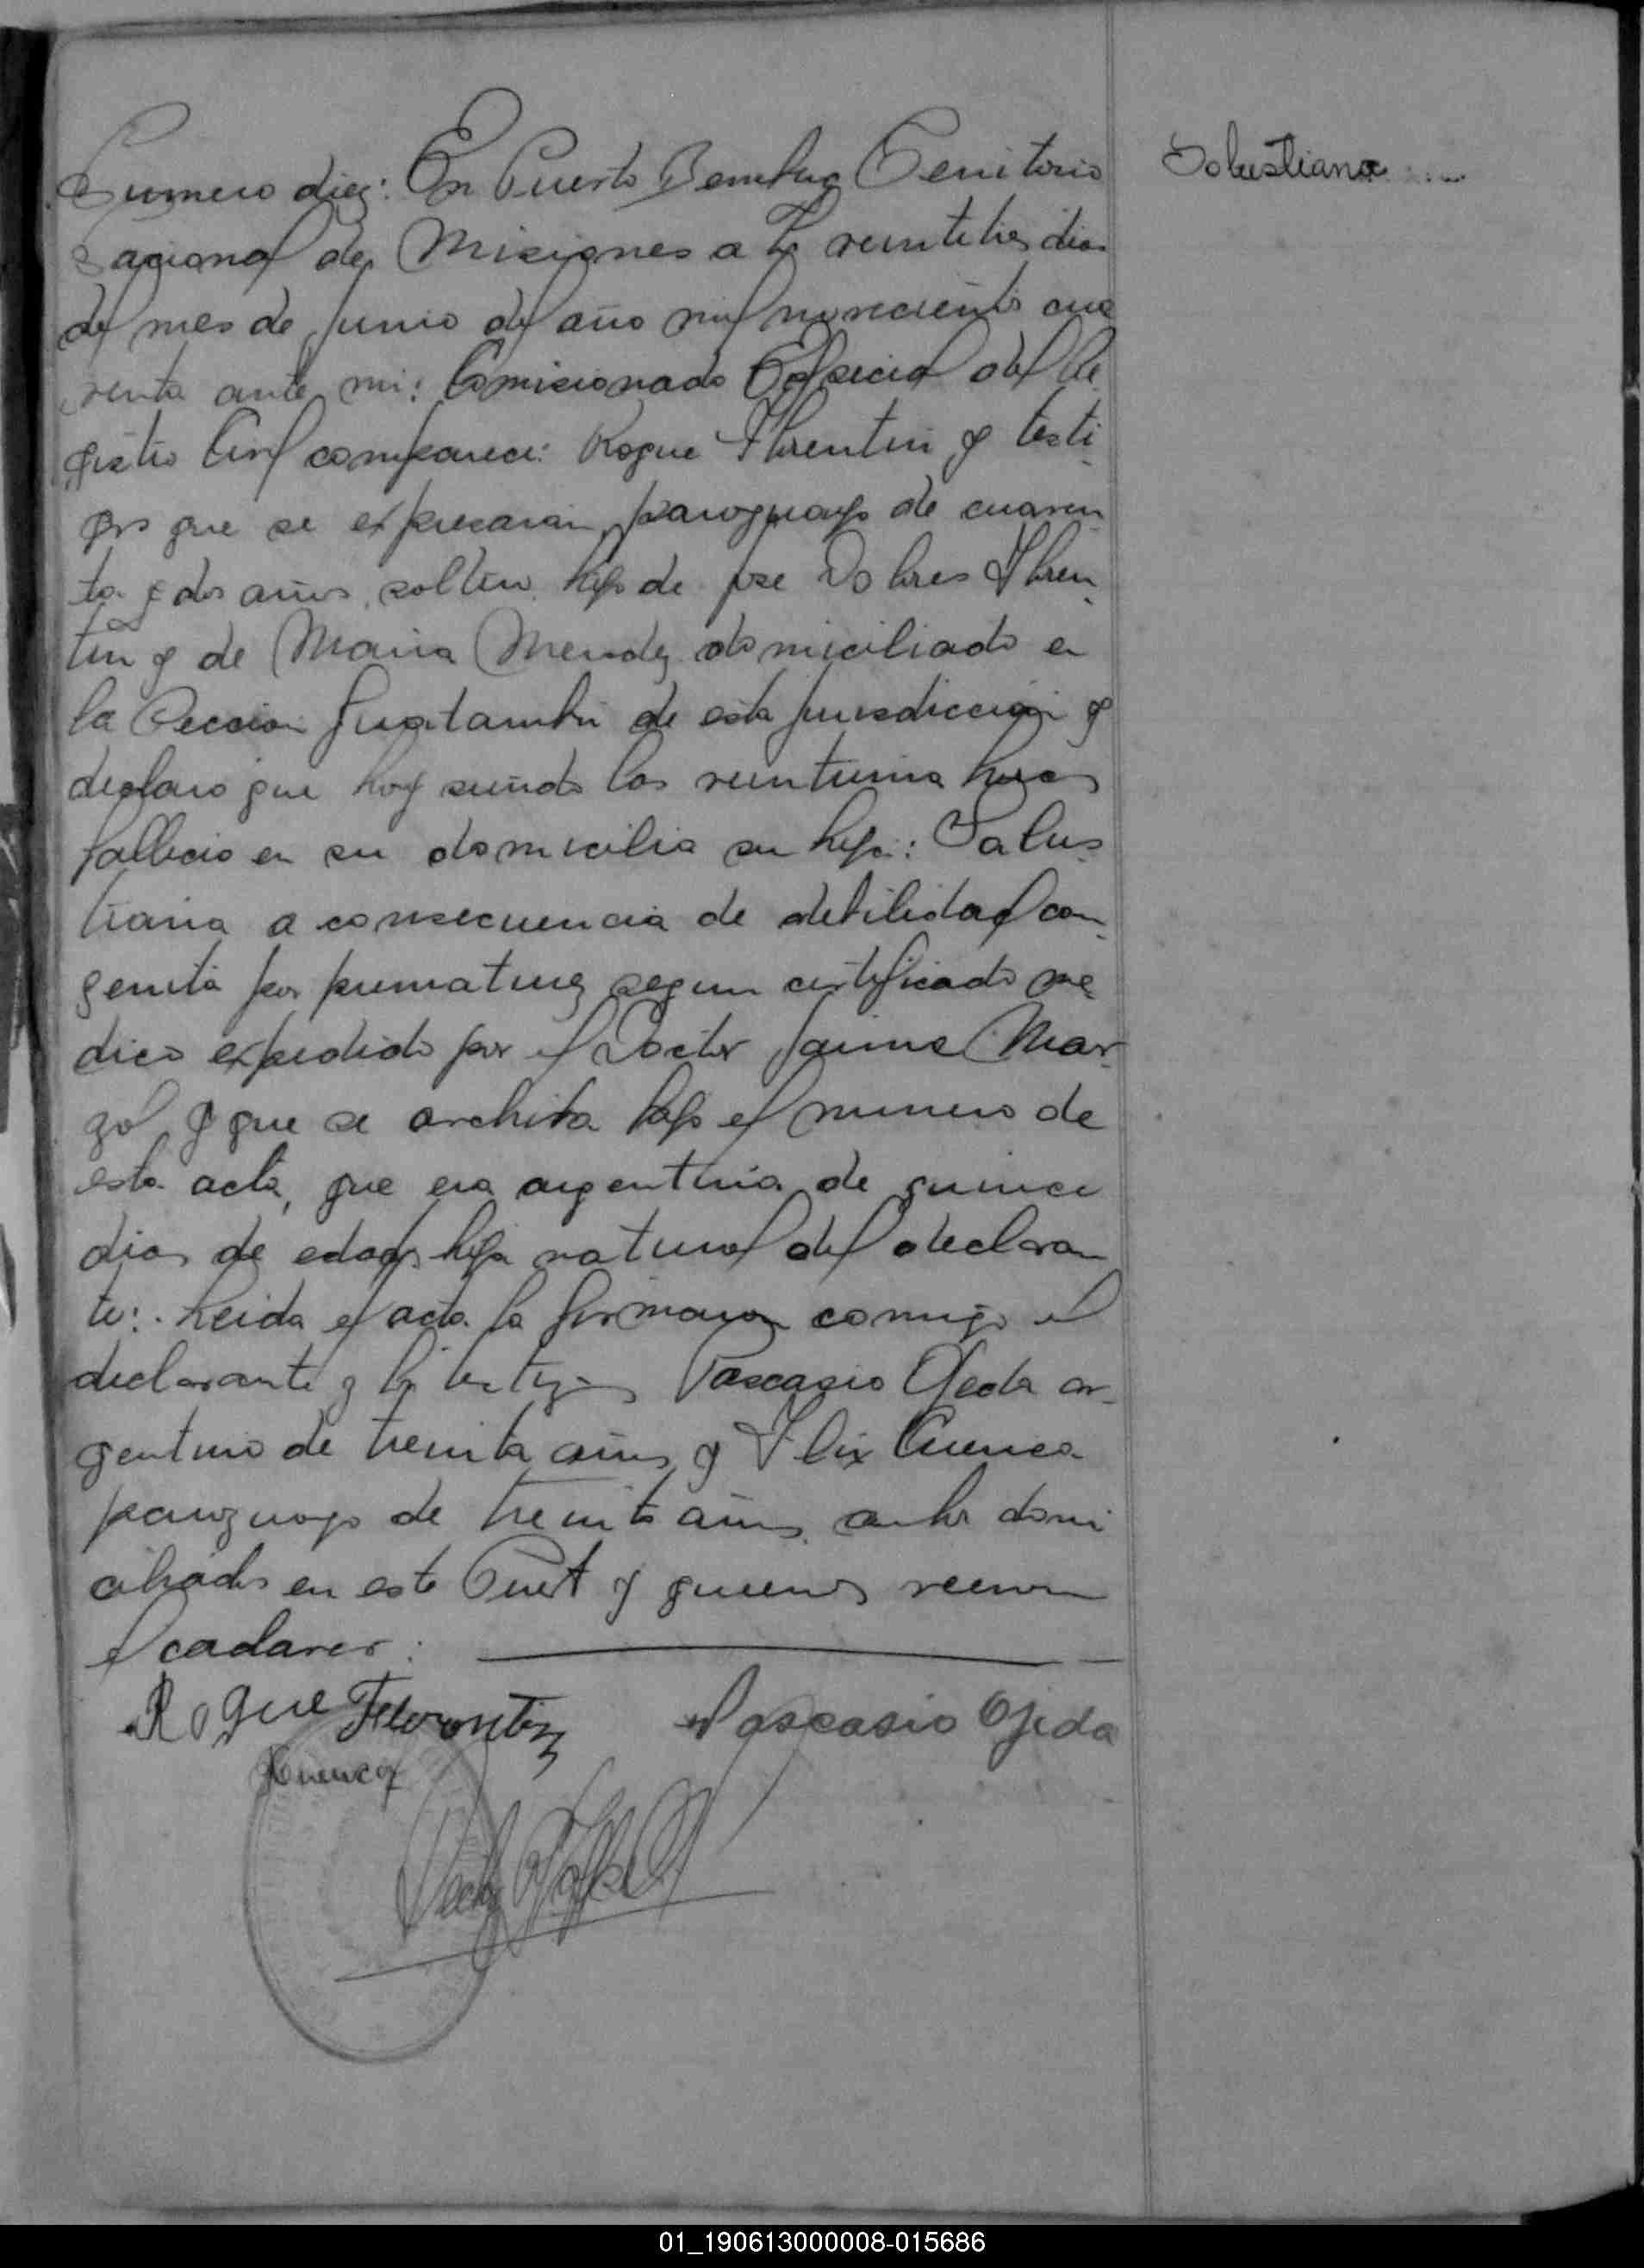 Numero diez: En Puerto Bemberg Territorio
Nacional de Misiones a los veintitres dias
del mes de Junio del año mil novecientos cua
renta ante mi: Comisionado Especial del Re
gistro Civil comparece: Roque Florentin y testi
gos que se expresaran, paraguayo de cuaren
ta y dos años, soltero, hijo de Jose Dolores Floren
tin y de Maria Mendez domiciliado en
la Seccion Guatambú de esta jurisdiccion y
declaro que hoy siendo las veintiuna horas
fallecio en su domicilio su hija: Salus
tiana a consecuencia de debilidad con
genita por prematurez segun certificado me
dico expedido por el Doctor Jaime Mar
zol y que se archiva bajo el numero de
esta acta, que era argentina, de quince
dias de edad, hija natural del declaran
te: Leida el acta la firmaron conmigo el
declarante y los testigos Pascasio Ojeda ar
gentino de treinta años y Felix Cuenca
paraguayo de treinta años, ambos domi
ciliados en este Puerto y quienes vieron
el cadaver:
Salustiana
Roque Florentin Pascasio Ojeda
Cuenca
01_190613000008-015686